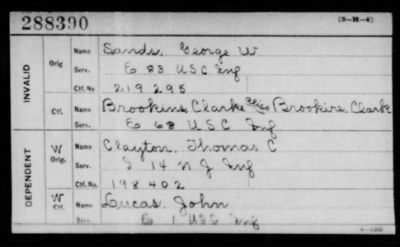 288390
(3-H-4)
INVALID
Orig
Name Sands, George W
Serv. E 83 USC Inf
Ctf. No. 219295
Ctf.
Name Brookins Clarke alias Brookire, Clark
Serv. E 68 USC Inf
DEPENDENT
W Orig.
Name Clayton, Thomas C
Serv. I 14 N J Inf
Ctf. No. 198402
W Ctf.
Name Lucas, John
Serv. E 1 USC Inf